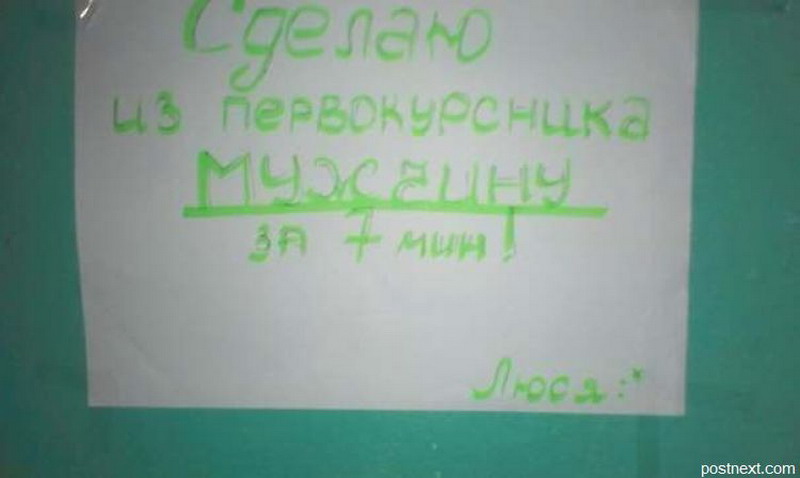 Сделаю
из первокурсника
мужчину
за 7 мин!
Люся :*
postnext.com